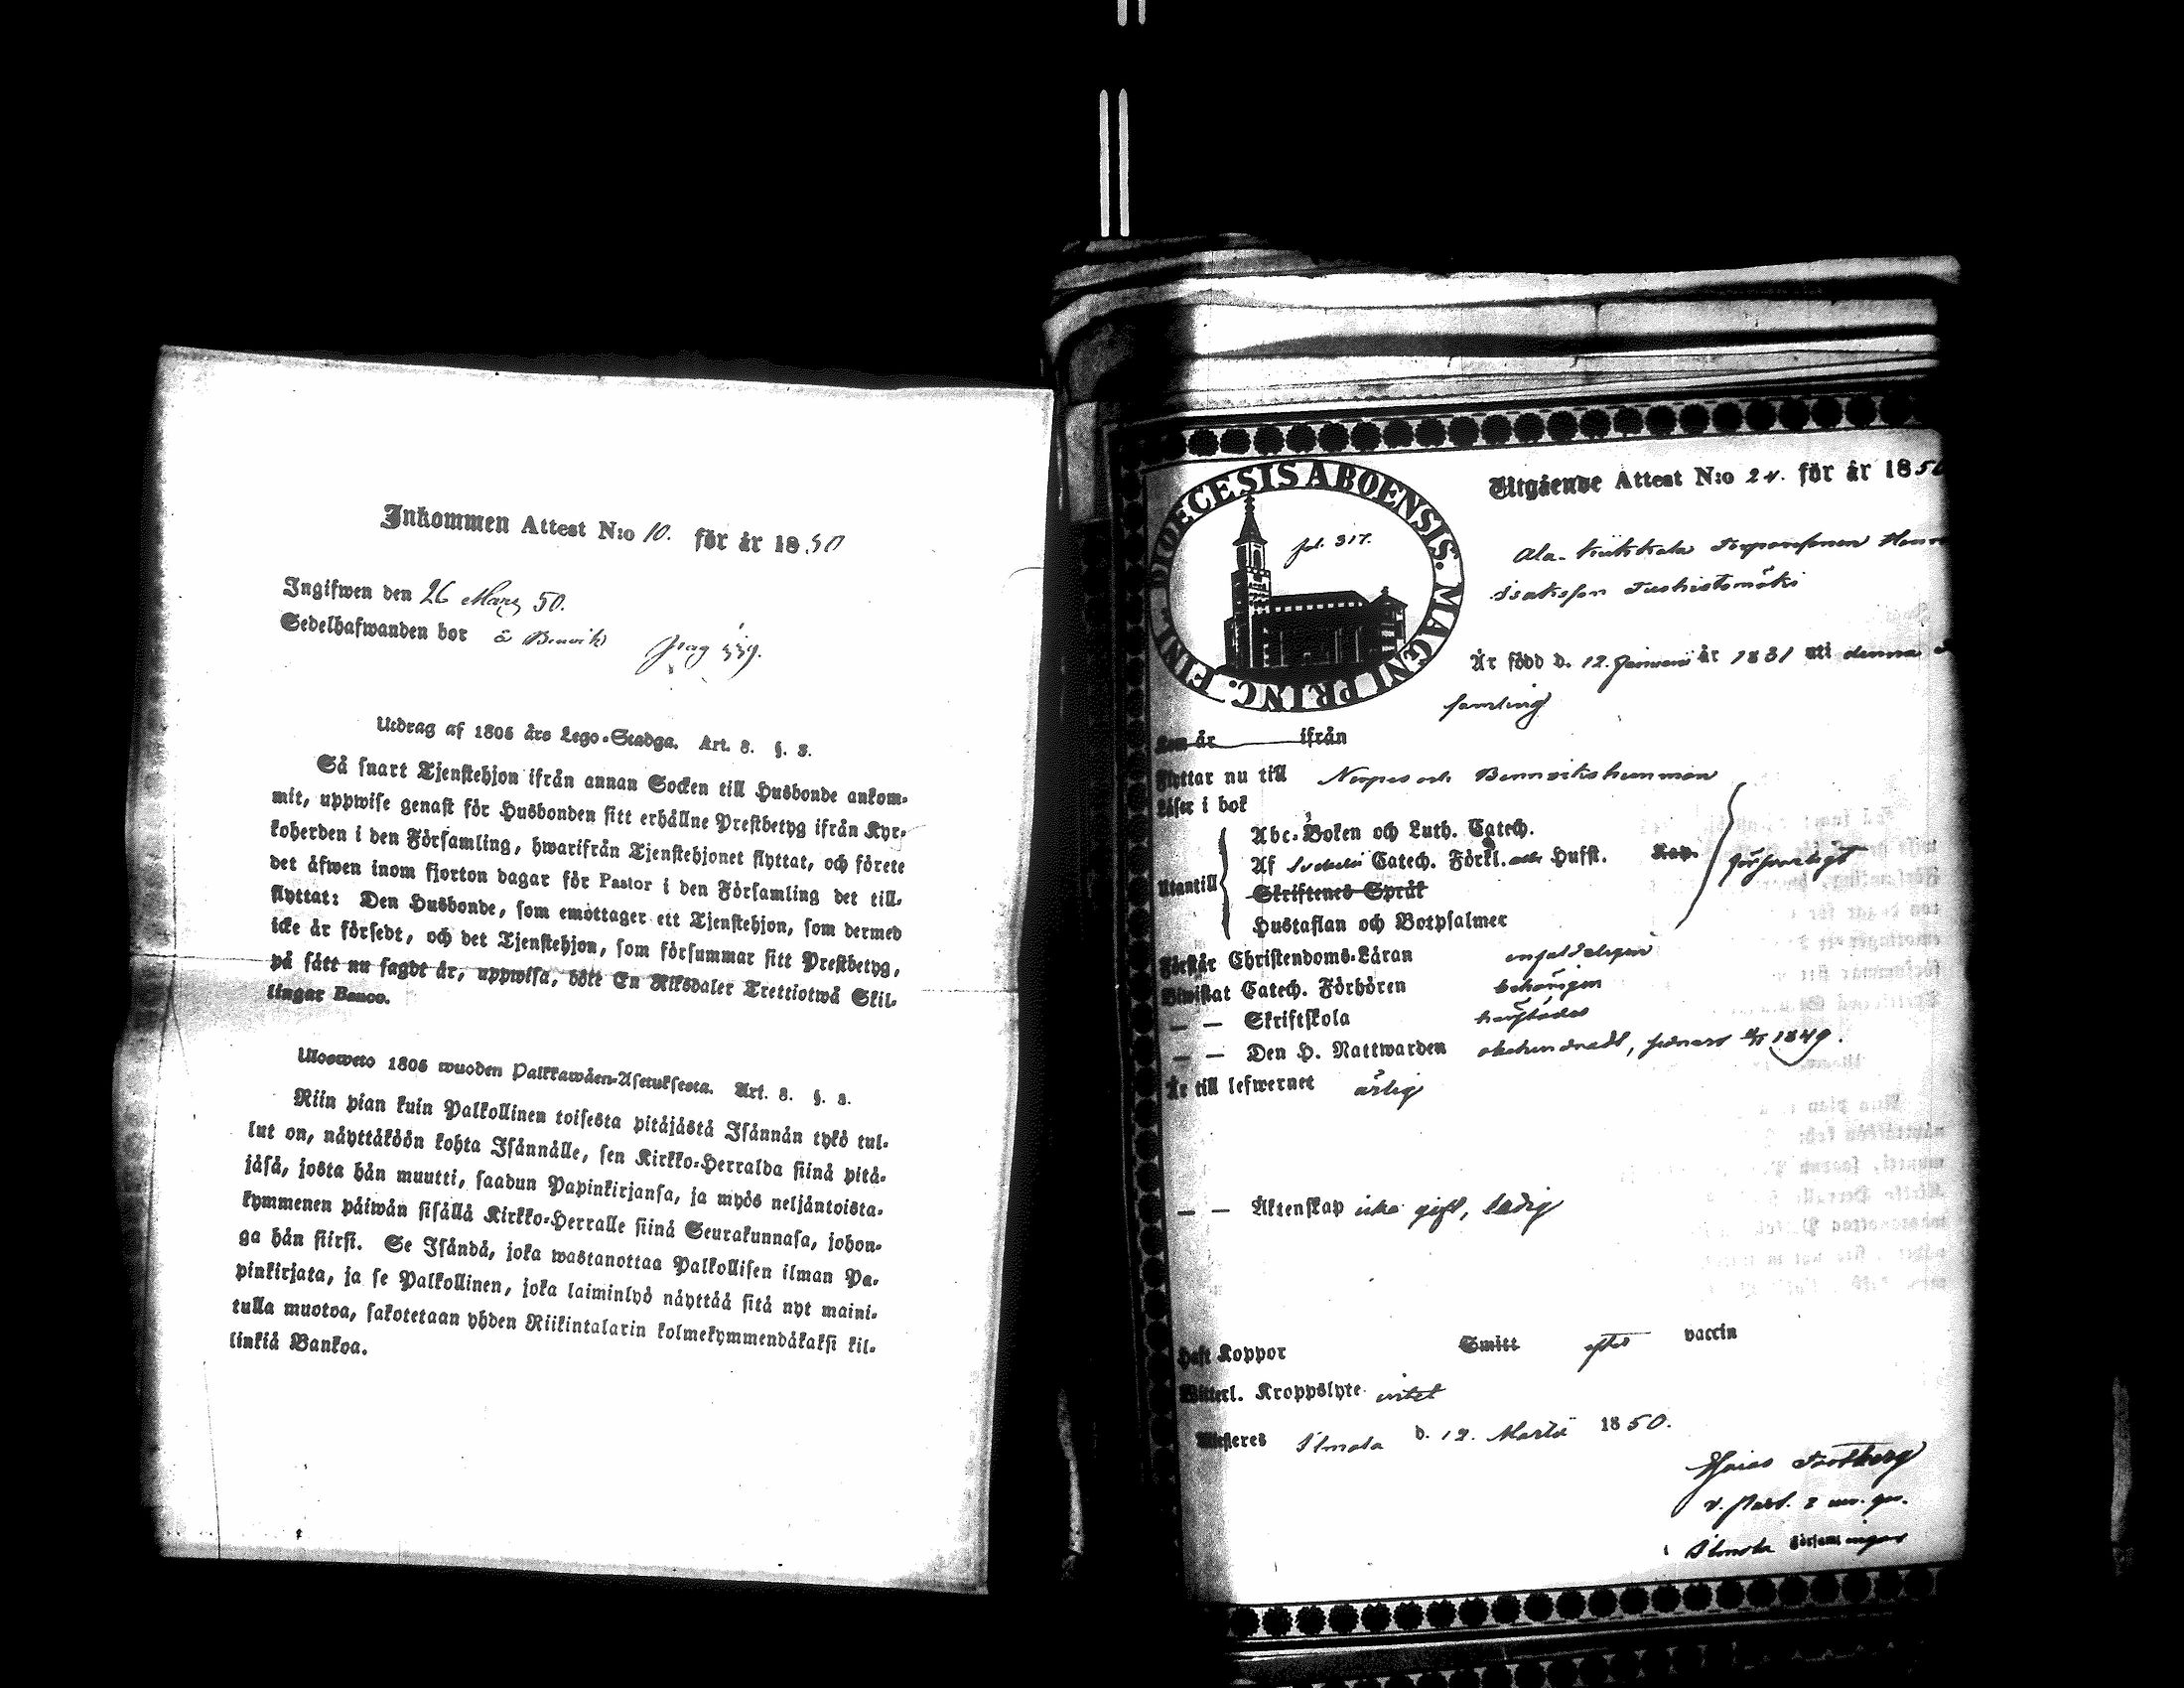 Inkommen Attest N:o 10. för år 1850
Ingifwen den 26 Mars 50.
Sedelhafwanden bor å Benvik pag 339.
Utdrag af 1805 års Lego-Stadga. Art. 8. §. 3.
Så snart Tjenstehjon ifrån annan Socken till Husbonde ankom-
mit, uppwise genast för Husbonden sitt erhållne Prestbetyg ifrån Kyr-
koherden i den Församling, hwarifrån Tjenstehjonet flyttat, och förete
det äfwen inom fjorton dagar för Pastor i den Församling det till-
flyttat: Den Husbonde, som emottager ett Tjenstehjon, som dermed
icke är försedt, och det Tjenstehjon, som försummar sitt Prestbetyg,
på sätt nu sagdt är, uppwisa, böte En Riksdaler Trettiotwå Skil-
lingar Banco.
Ulosweto 1805 wuoden Palkkawäen-Asetuksesta. Art. 8. §. 3.
Niin pian kuin Palkollinen toisesta pitäjästä Isännän tykö tul-
lut on, näyttäköön kohta Isännälle, sen Kirkko-Herralda siinä pitä-
jäsä, josta hän muutti, saadun Papinkirjansa, ja myös neljäntoista-
kymmenen päiwän sisällä Kirkko-Herralle siinä Seurakunnasa, johon-
ga hän siirsi. Se Isändä, joka wastanottaa Palkollisen ilman Pa-
pinkirjata, ja se Palkollinen, joka laiminlyö näyttää sitä nyt maini-
tulla muotoa, sakotetaan yhden Riikintalarin kolmekymmendäkaksi kil-
linkiä Bankoa.
DIOECESIS ABOENSIS. MAGNI PRINC. FINL.
fol. 317.
Utgående Attest N:o 24. för år 1850
Ala-
Isaksson
Är född d. 12. Januari år 1831 uti denna
samling
Kom år ifrån
Flyttar nu till Nerpes och
Läser i bok
Abc-Boken och Luth. Catech.
Af Svebelii Catech. Förkl. och Husst.
Utantill Skriftenes Språk
försvarligt
Hustaflan och Botpsalmer
Förstår Christendoms-Läran enfaldeligen
Biwistat Catech. Förhören behörigen
— — Skriftskola
— — Den H. Nattwarden 1849.
Är till lefwernet ärlig
— — Äktenskap icke gift, ledig
Haft Koppor Smitt efter vaccin
Witterl. Kroppslyte intet
Attesteras Ilmola d. 12. Martii 1850.
v. Past.
Ilmola Församlingar